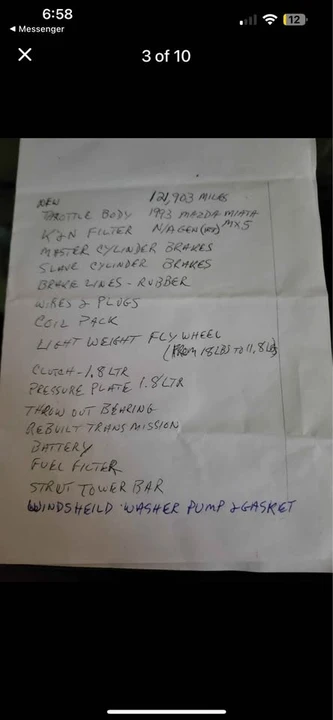 6:58
12
◀ Messenger
3 of 10
NEW 121,903 MILES
THROTTLE BODY 1993 MAZDA MIATA
K&N FILTER N/A GEN MX5
MASTER CYLINDER BRAKES
SLAVE CYLINDER BRAKES
BRAKE LINES - RUBBER
WIRES & PLUGS
COIL PACK
LIGHT WEIGHT FLY WHEEL
(FROM 18 LBS TO 11.8 LBS
CLUTCH - 1.8 LTR
PRESSURE PLATE 1.8 LTR
THROW OUT BEARING
REBUILT TRANSMISSION
BATTERY
FUEL FILTER
STRUT TOWER BAR
WINDSHEILD WASHER PUMP & GASKET